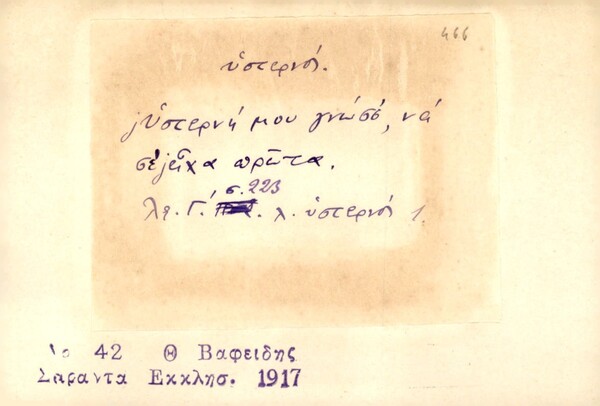 466
ὑστερνός.
Ὑστερνή μου γνώσ', νά
σ' εἶχα πρῶτα.
σ. 223
λ. ὑστερνός 1.
42 Θ Βαφειδης
Σαραντα Εκκλησ. 1917